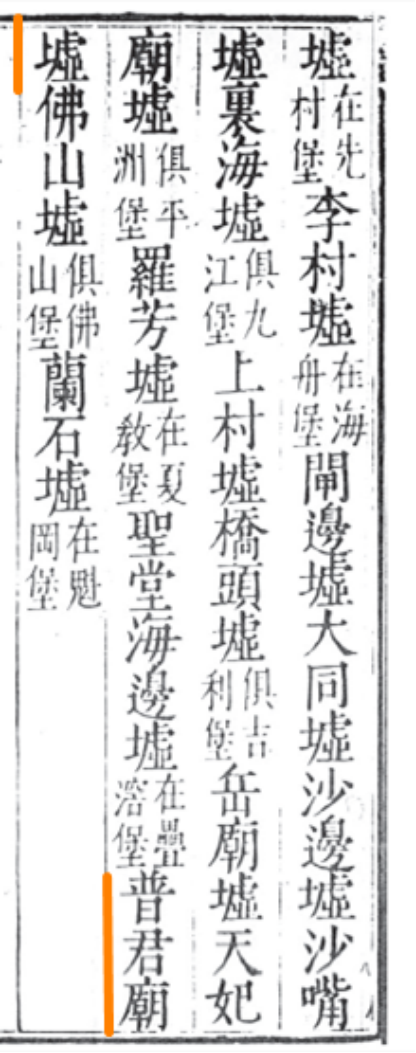 墟在先村堡李村墟在海舟堡閘邊墟大同墟沙邊墟沙嘴
墟裏海墟俱九江堡上村墟橋頭墟俱吉利堡岳廟墟天妃
廟墟俱平洲堡羅芳墟在夏敎堡聖堂海邊墟在疊滘堡普君廟
墟佛山墟俱佛山堡蘭石墟在魁岡堡